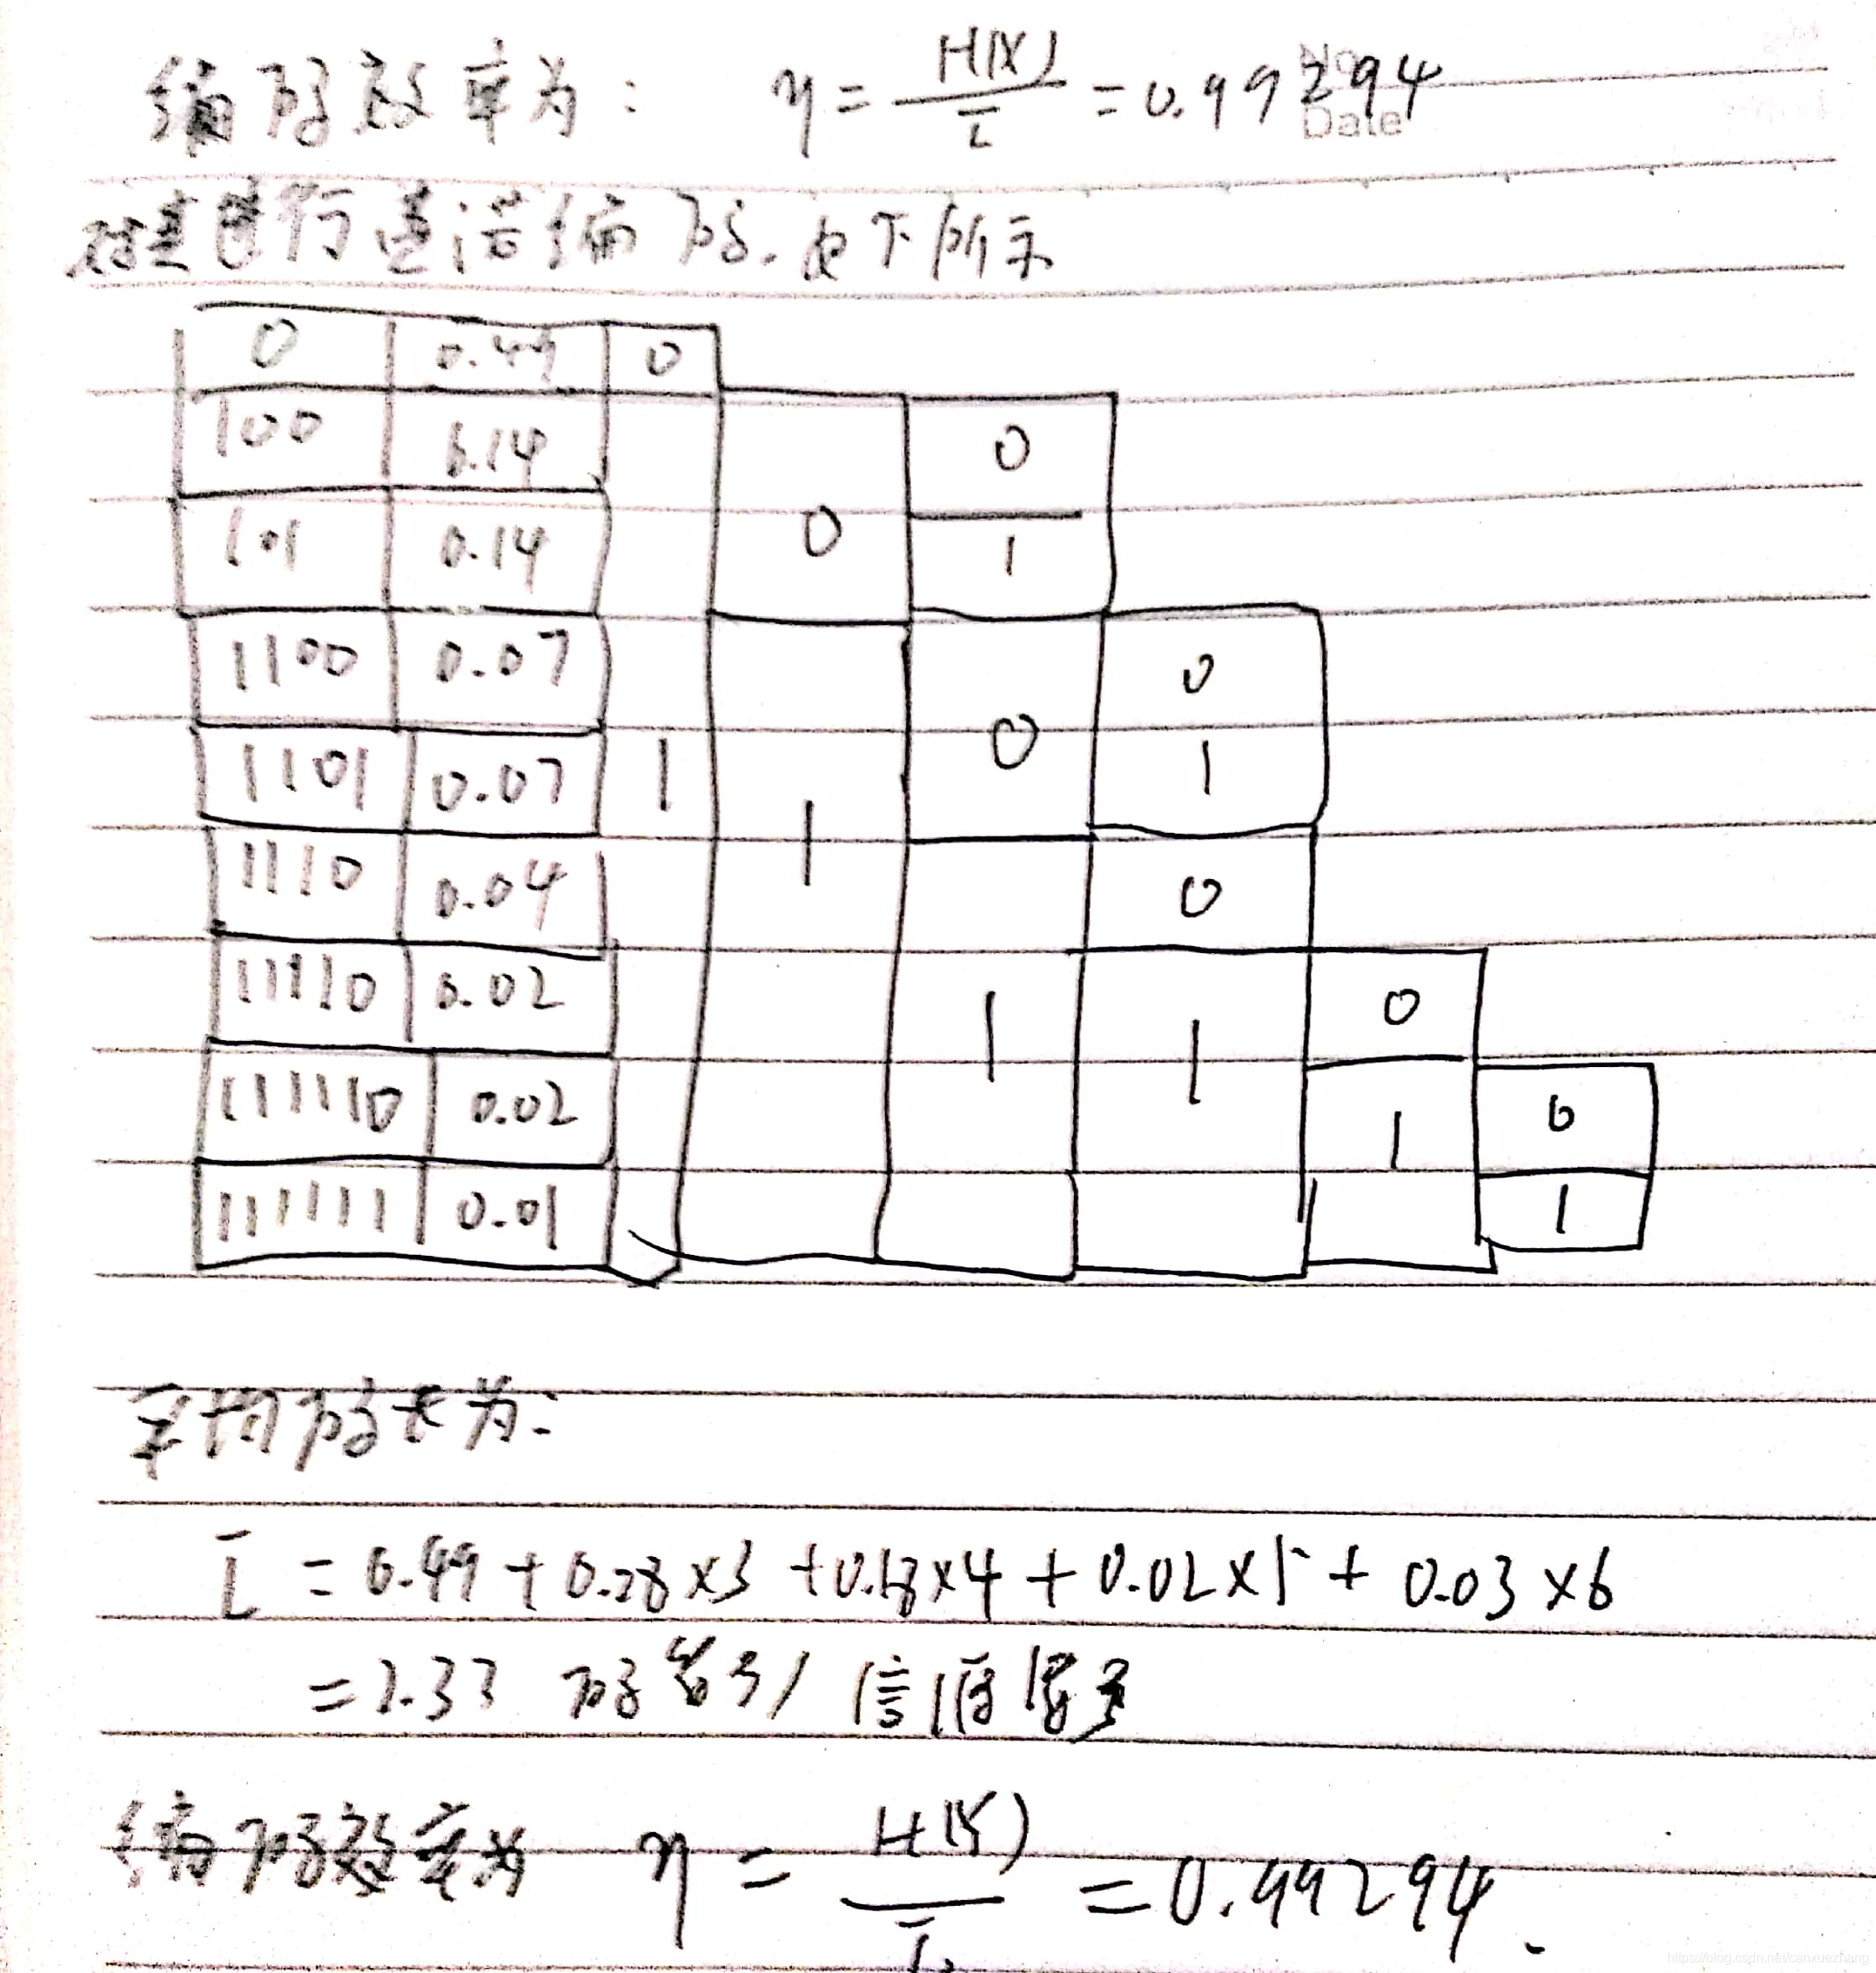 编码效率为: η = H(X) / L̄ = 0.99294
No.
Date
对其进行费诺编码.如下所示
0 0.49 0
100 0.14 0
101 0.14 0 1
1100 0.07 0
1101 0.07 1 1 0 1
1110 0.04 0
11110 0.02 1 1 0
111110 0.02 1 0
111111 0.01 1
平均码长为:
L̄ = 0.49 + 0.28×3 + 0.18×4 + 0.02×5 + 0.03×6
= 2.33 码符号/信源符号
编码效率为 η = H(X) / L̄ = 0.99294.
https://blog.csdn.net/canxuezhang